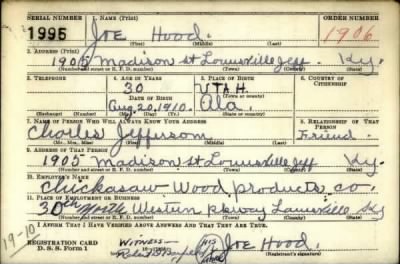 SERIAL NUMBER 1. NAME (Print) ORDER NUMBER
1995 JOE Hood 1906
(First) (Middle) (Last)
2. ADDRESS (Print)
1905 Madison st Louisville Jeff. Ky.
(Number and street or R. F. D. number) (Town) (County) (State)
3. TELEPHONE 4. AGE IN YEARS 5. PLACE OF BIRTH 6. COUNTRY OF CITIZENSHIP
30 UTAH
DATE OF BIRTH (Town or county)
Aug. 20, 1910. Ala.
(Exchange) (No.) (Mo.) (Day) (Yr.) (State or country)
7. NAME OF PERSON WHO WILL ALWAYS KNOW YOUR ADDRESS 8. RELATIONSHIP OF THAT PERSON
Charles Jefferson Friend.
9. ADDRESS OF THAT PERSON
1905 Madison st Louisville Jeff Ky.
(Number and street or R. F. D. number) (Town) (County) (State)
10. EMPLOYER'S NAME
Chickasaw Wood products co.
11. PLACE OF EMPLOYMENT OR BUSINESS
30th Western pkway Louisville Ky
(Number and street or R. F. D. number) (Town) (County) (State)
I AFFIRM THAT I HAVE VERIFIED ABOVE ANSWERS AND THAT THEY ARE TRUE.
19-101
REGISTRATION CARD
D. S. S. Form 1
Witness- HIS JOE Hood.